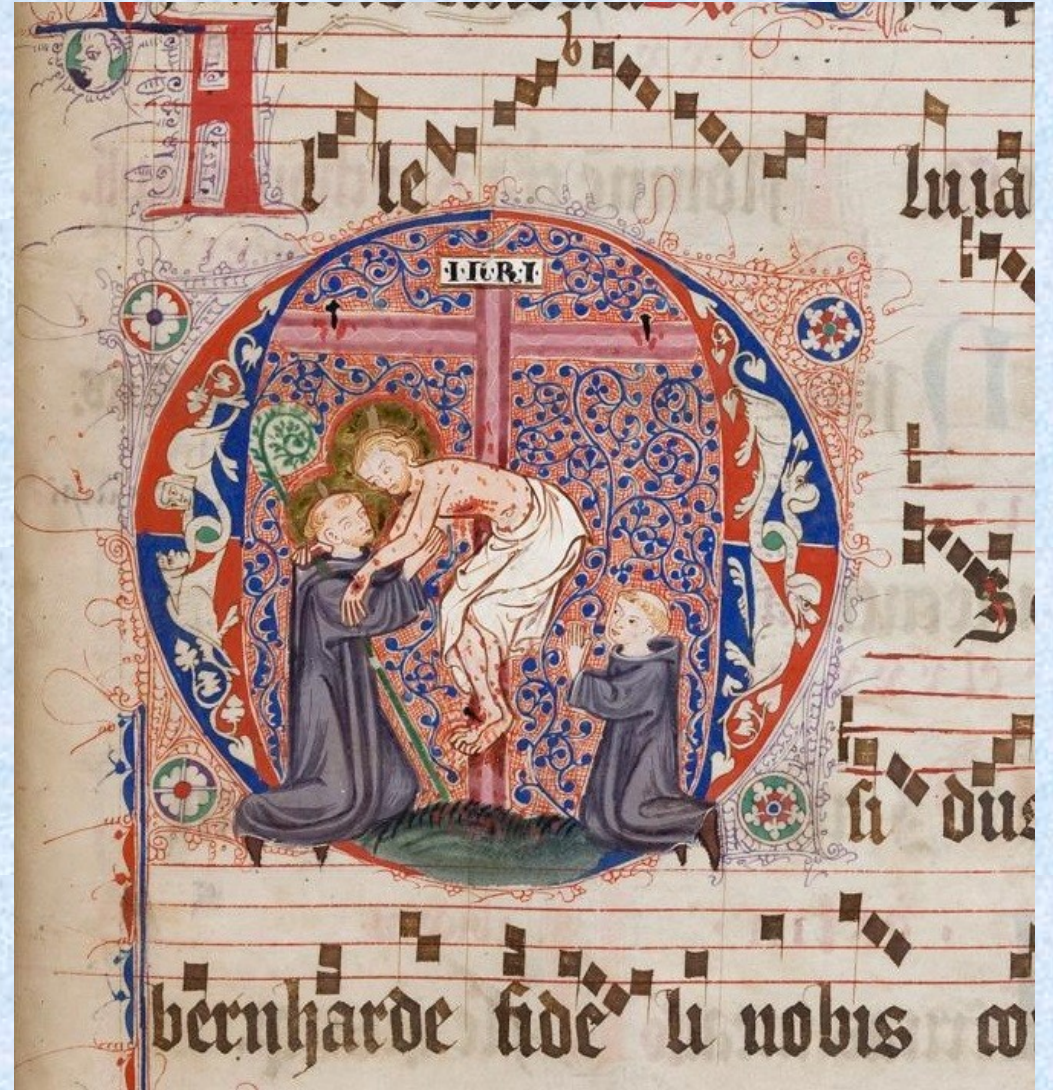 Al le luia
·I·N·R·I·
O
si dus
bernharde fide li nobis co